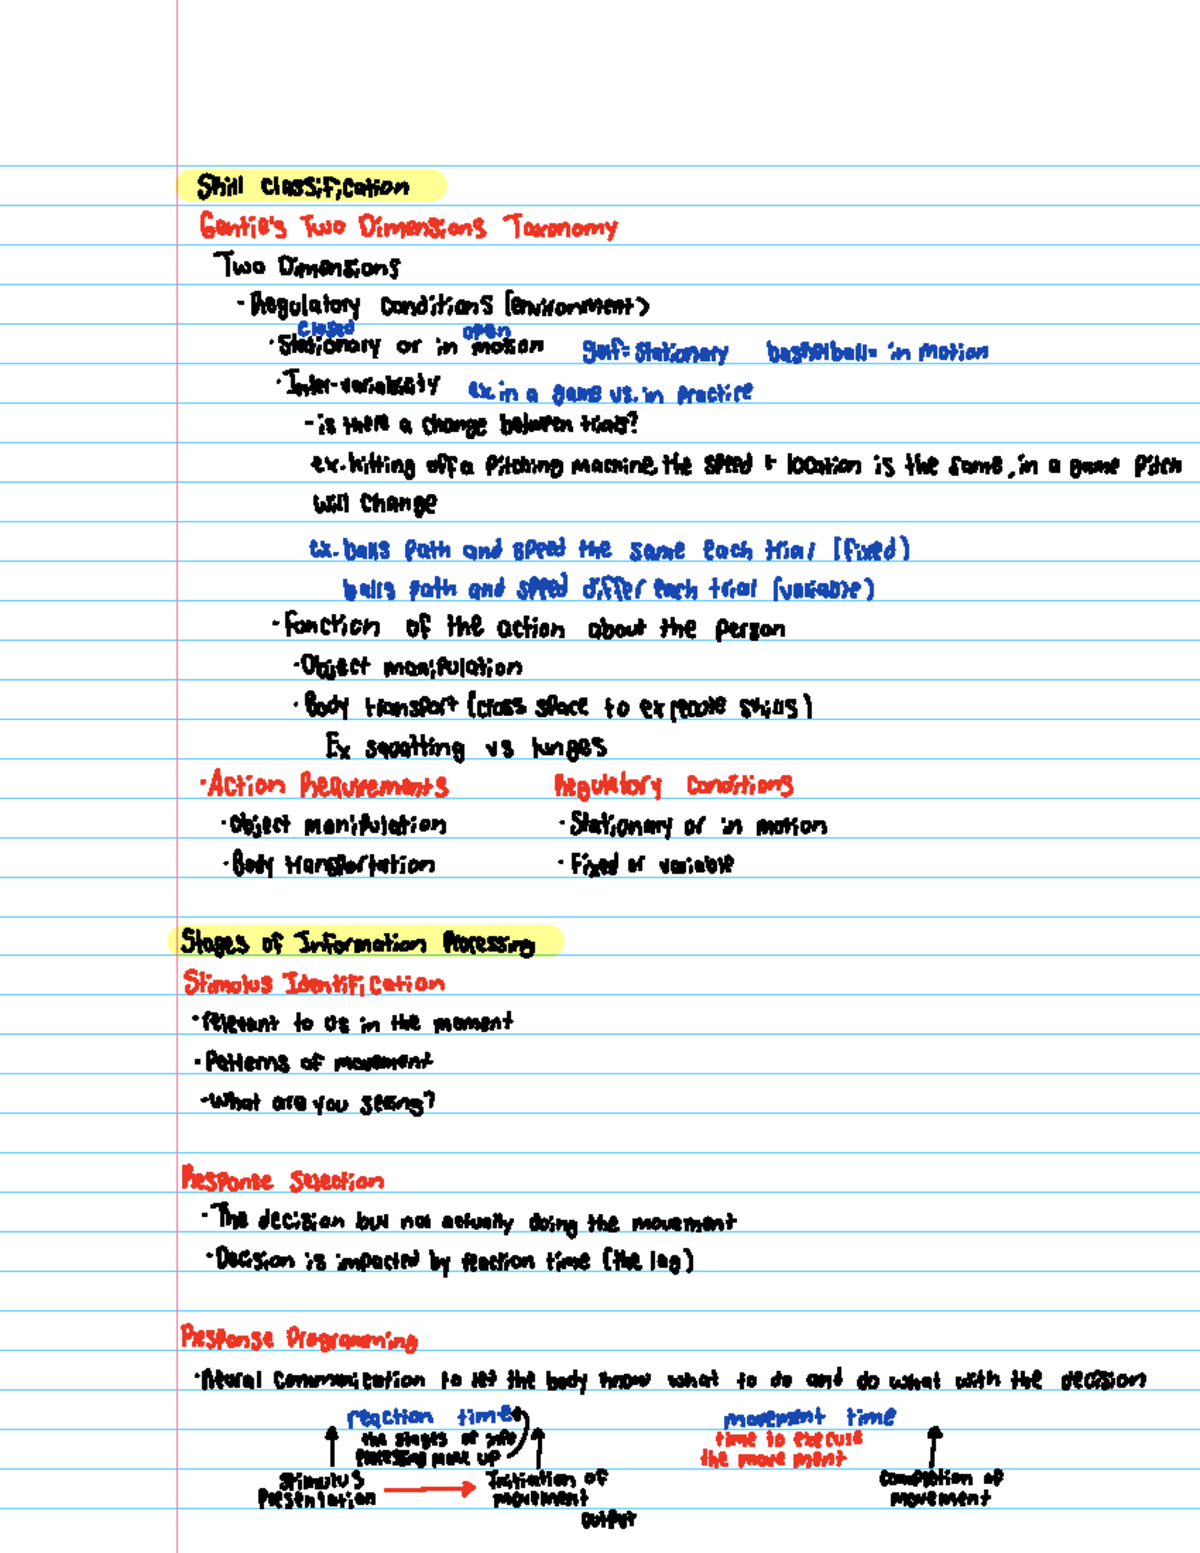 Skill classification
Gentile's Two Dimensions Taxonomy
Two Dimensions
- Regulatory conditions (environment)
closed open
· Stationary or in motion golf= stationary basketball= in motion
· Inter-variability ex. in a game vs. in practice
- is there a change between trials?
ex. hitting off a pitching machine, the speed + location is the same, in a game pitch
will change
ex. balls path and speed the same each trial (fixed)
balls path and speed differ each trial (variable)
- Function of the action about the person
· Object manipulation
· Body transport (cross space to skills)
Ex squatting vs lunges
· Action Requirements Regulatory conditions
· Object manipulation · Stationary or in motion
· Body transportation · Fixed or variable
Stages of Information Processing
Stimulus Identification
· relevant to us in the moment
· Patterns of movement
· What are you seeing?
Response Selection
· The decision but not actually doing the movement
· Decision is impacted by reaction time (the lag)
Response Programming
· Neural communication to let the body know what to do and do what with the decision
reaction time movement time
the stages of info time to execute
processing make up the movement
Stimulus Initiation of completion of
Presentation movement movement
output